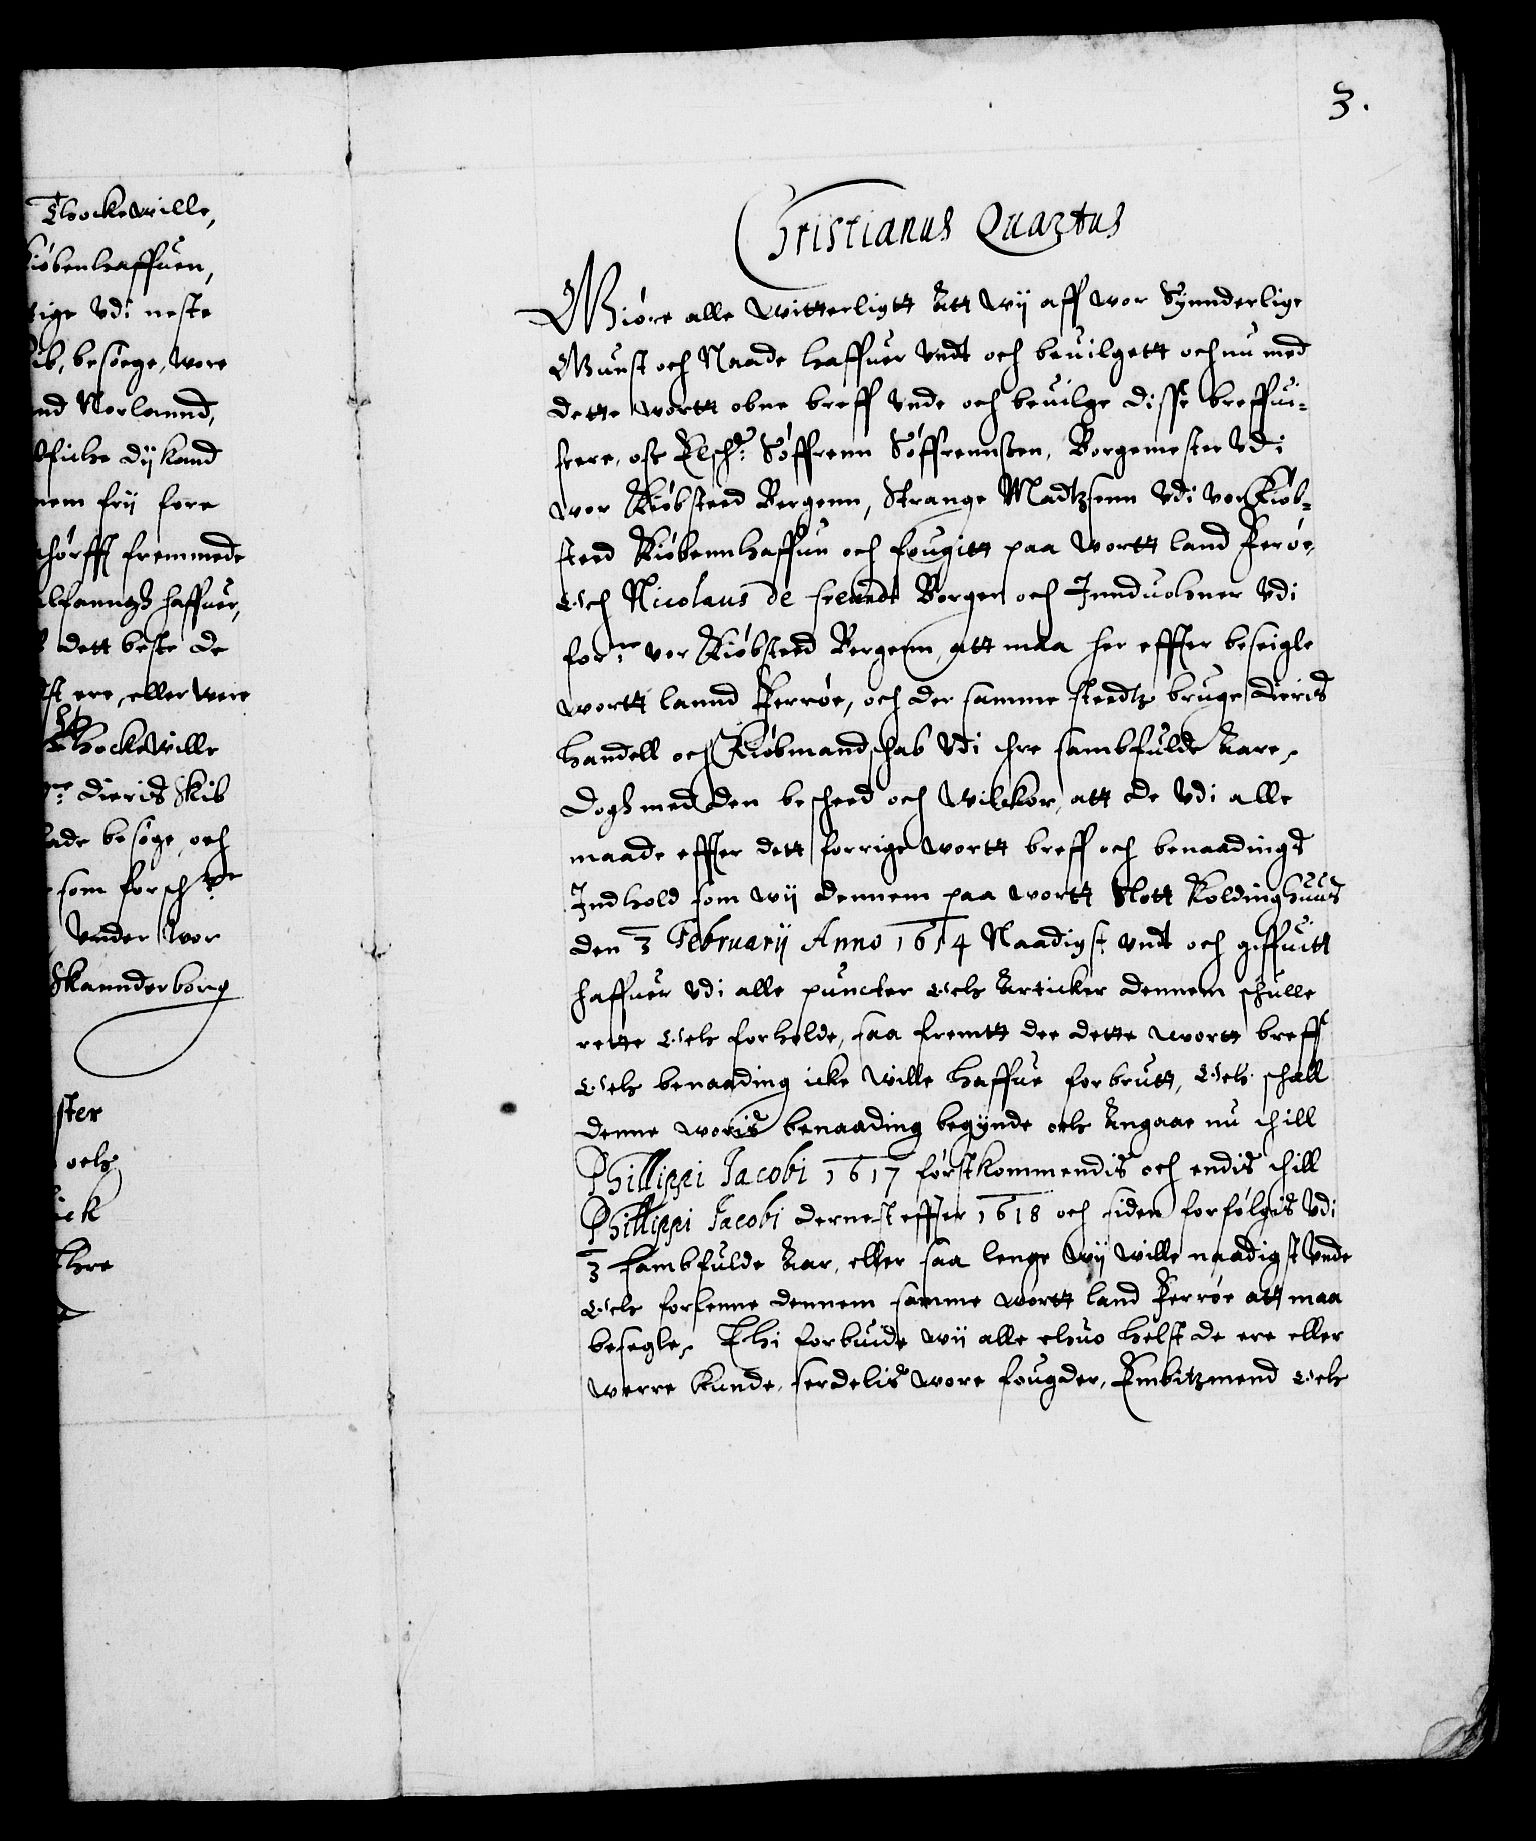 Thockewille,
Kiøbenhaffuen,
tige vdi neste
ib, besøege, wore
nd Norlannd,
dÿ kand
nem frij fore
hørffj fremmede
haffuer,
dett beste de
st ere, eller were
ThockeWille
dieris Skib
lade besøge, och
som forsch:ne
Vnder Wor
Skannderborg
ster
och
ick
thre
3.
Christianus Quartus
Giøre alle Witterligtt Att Wij aff wor Synnderlige
Gunst och Naade haffuer Vndt och beuilgett och nu med
dette wortt obne breff Vnde och beuilge disse breffui-
sere, oss Elsch:e Søffrenn Søffrennsøn, Borgemester Vdi
wor Kiøbsted Bergenn, Strange Madtzsenn Vdi vor Kiøb-
sted Kiøbennhaffun och fougitt paa wortt land Ferøe,
Och Nicolaus de freundt Borger och Innduohner Vdi
for:ne vor Kiøbsted Bergenn, att maa her effter beseigle
wortt lannd Ferrøe, och der samme stedtz bruge dieris
handell och Kiøbmandschab Vdi thre sambfulde Aare,
Dogh med den bescheed och Wilckor, att de Vdi alle
maade effter dett forrige wortt breff och benaadings
Indhold som wij dennem paa wortt Slott Koldinghuus
den 3 Februarij Anno 1614 Naadigst vndt och giffuitt
haffuer Vdi alle puncter och Articker dennem schulle
rette Och forholde, saa fremtt dee dette wortt breff
Och benaading icke wille haffue forbrutt, Och schall
denne woris benaading begynde och Angaae nu thill
Phillippi Jacobi 1617 førstkommendis och endis thill
Phillippi Jacobi dernest effter 1618 och siden forfølgis Vdi
3 sambfulde Aar, eller saa lenge Wij wille naadigst Vnde
Och forlenne dennem samme wortt land Ferrøe att maa
besegle, Thi forbiude wij alle ehuo helst de ere eller
werre kunde, serdelis wore fougder, Embitzmend Och